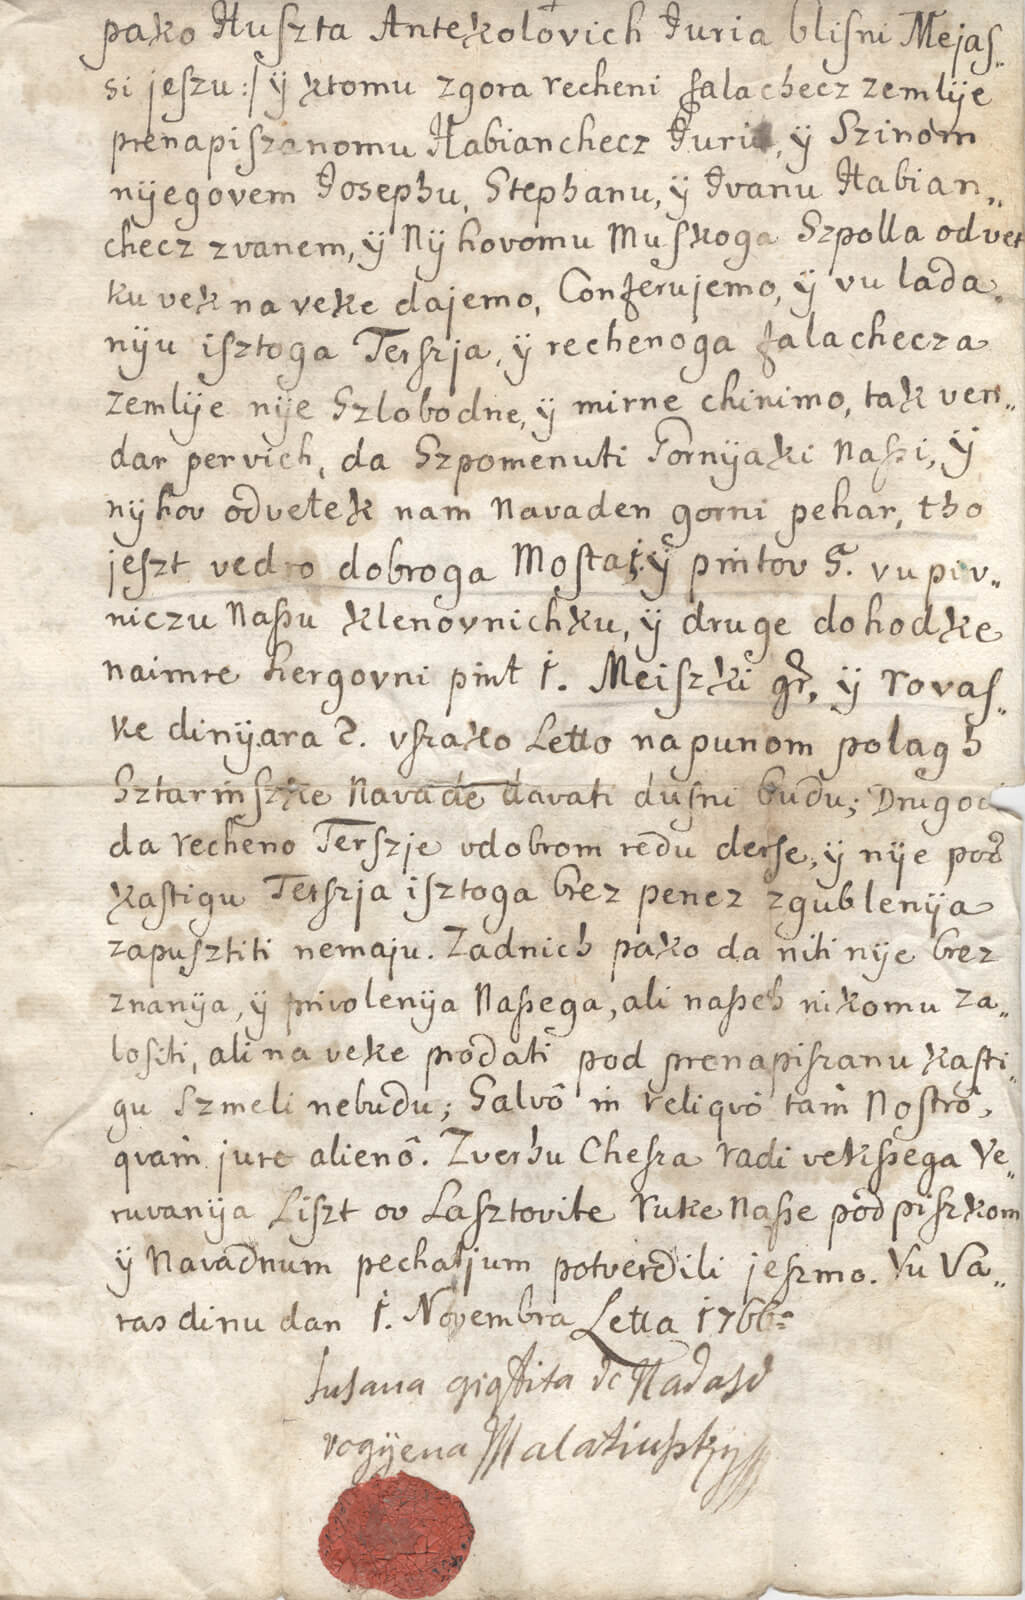 pako Huszta Antekolovich Juria blisni Mejas„
si jeszu :/ ÿ ktomu zgora recheni falachecz zemlÿe
prenapiszanomu Habianchecz Juriu, ÿ Szinom
nÿegovem Josephu, Stephanu, ÿ Jvanu Habian„
checz zvanem, ÿ Nÿhovomu Muskoga Szpolla odvet
ku vek na veke dajemo, Conferujemo, ÿ vu lada„
nÿu isztoga Terszja, ÿ rechenoga falachecza
zemlÿe nÿe Szlobodne, ÿ mirne chinimo, tak ven„
dar pervich, da Szpomenuti Gornÿaki Naßi, ÿ
nÿhov odvetek nam Navaden gorni pehar, tho
jeszt vedro dobroga Mosta, ÿ pintov 5. vu piv„
niczu Naßu Klenovnichku, ÿ druge dohodke
naimre hergovni pint 1. Meiszki gr, ÿ rovas„
ke dinÿara 2. vszako Letto napunom polag h
Sztarinszke Navade davati dusni budu; Drugoch
da recheno Terszje vdobrom redu derse, ÿ nÿe pod
kastigu Terszja isztoga brez penez zgublenÿa
zapusztiti nemaju. Zadnich pako da niti nÿe brez
znanÿa, ÿ privolenÿa Naßega, ali naßeh nikomu za„
lositi, ali na veke prodati pod prenapiszanu kasti„
gu Szmeli nebudu; Salvô in reliquô tam Nostrô,
quam jure alienô. Zverhu Chesza radi vekßega Ve„
ruvanÿa Liszt ov Lasztovite ruke Naße pod piszkom
ÿ Navadnum pechatjum potverdili jeszmo. Vu Va„
rasdinu dan 1. Novembra Letta 1766:
Susana de Nadasd
rogÿena